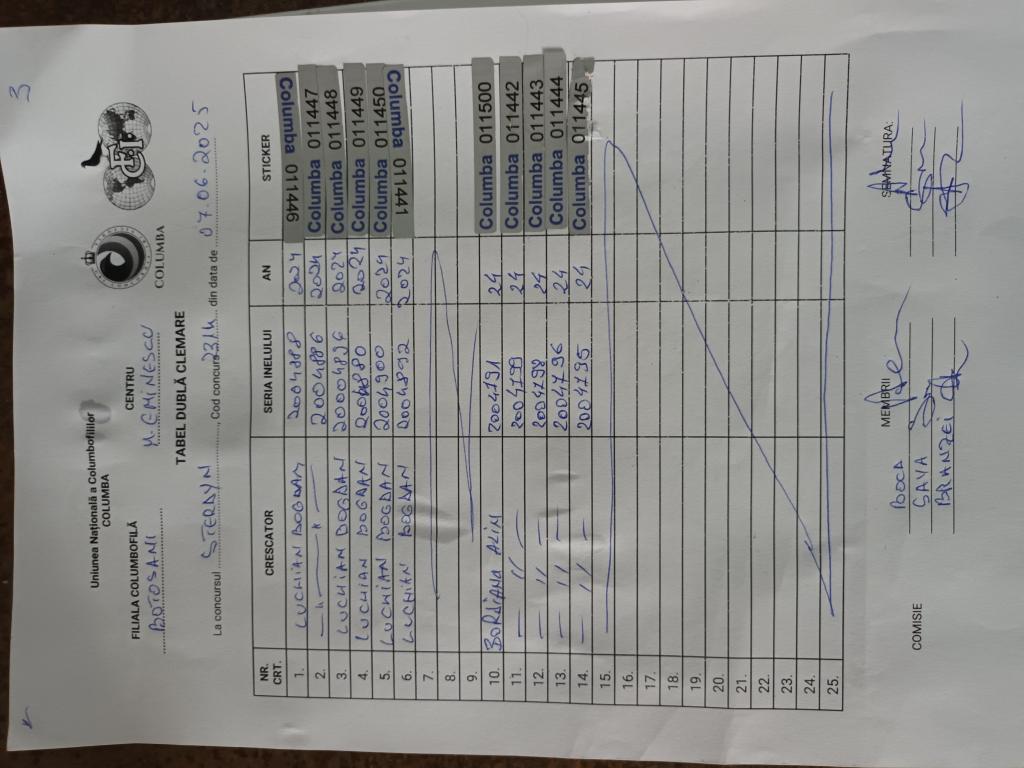 3
Uniunea Națională a Columbofililor
COLUMBA
COLUMBA
FCI
FILIALA COLUMBOFILĂ CENTRU
BOTOSANI M. EMINESCU
TABEL DUBLĂ CLEMARE
La concursul STERDYN, Cod concurs 22/4 din data de 07.06.2025
NR. CRT. CRESCATOR SERIA INELULUI AN STICKER
1. LUCHIAN BOGDAN 2004888 2024 Columba 011446
2. — " — " — 2004886 2024 Columba 011447
3. LUCHIAN BOGDAN 20004896 2024 Columba 011448
4. LUCHIAN BOGDAN 2004880 2024 Columba 011449
5. LUCHIAN BOGDAN 2004900 2024 Columba 011450
6. LUCHIAN BOGDAN 2004892 2024 Columba 011441
7.
8.
9.
10. ALIN 2004791 24 Columba 011500
11. — " — 2004799 24 Columba 011442
12. — " — 2004798 24 Columba 011443
13. — " — 2004796 24 Columba 011444
14. — " — 2004795 24 Columba 011445
15.
16.
17.
18.
19.
20.
21.
22.
23.
24.
25.
COMISIE MEMBRII SEMNATURA:
SAVA
BRANZEI